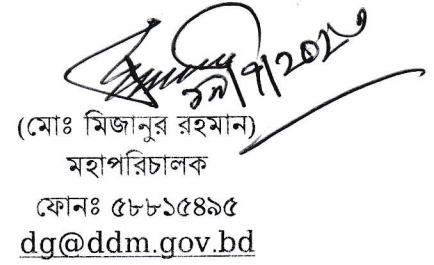 (মোঃ মিজানুর রহমান)
মহাপরিচালক
ফোনঃ ৫৮৮১৫৪৯৫
dg@ddm.gov.bd